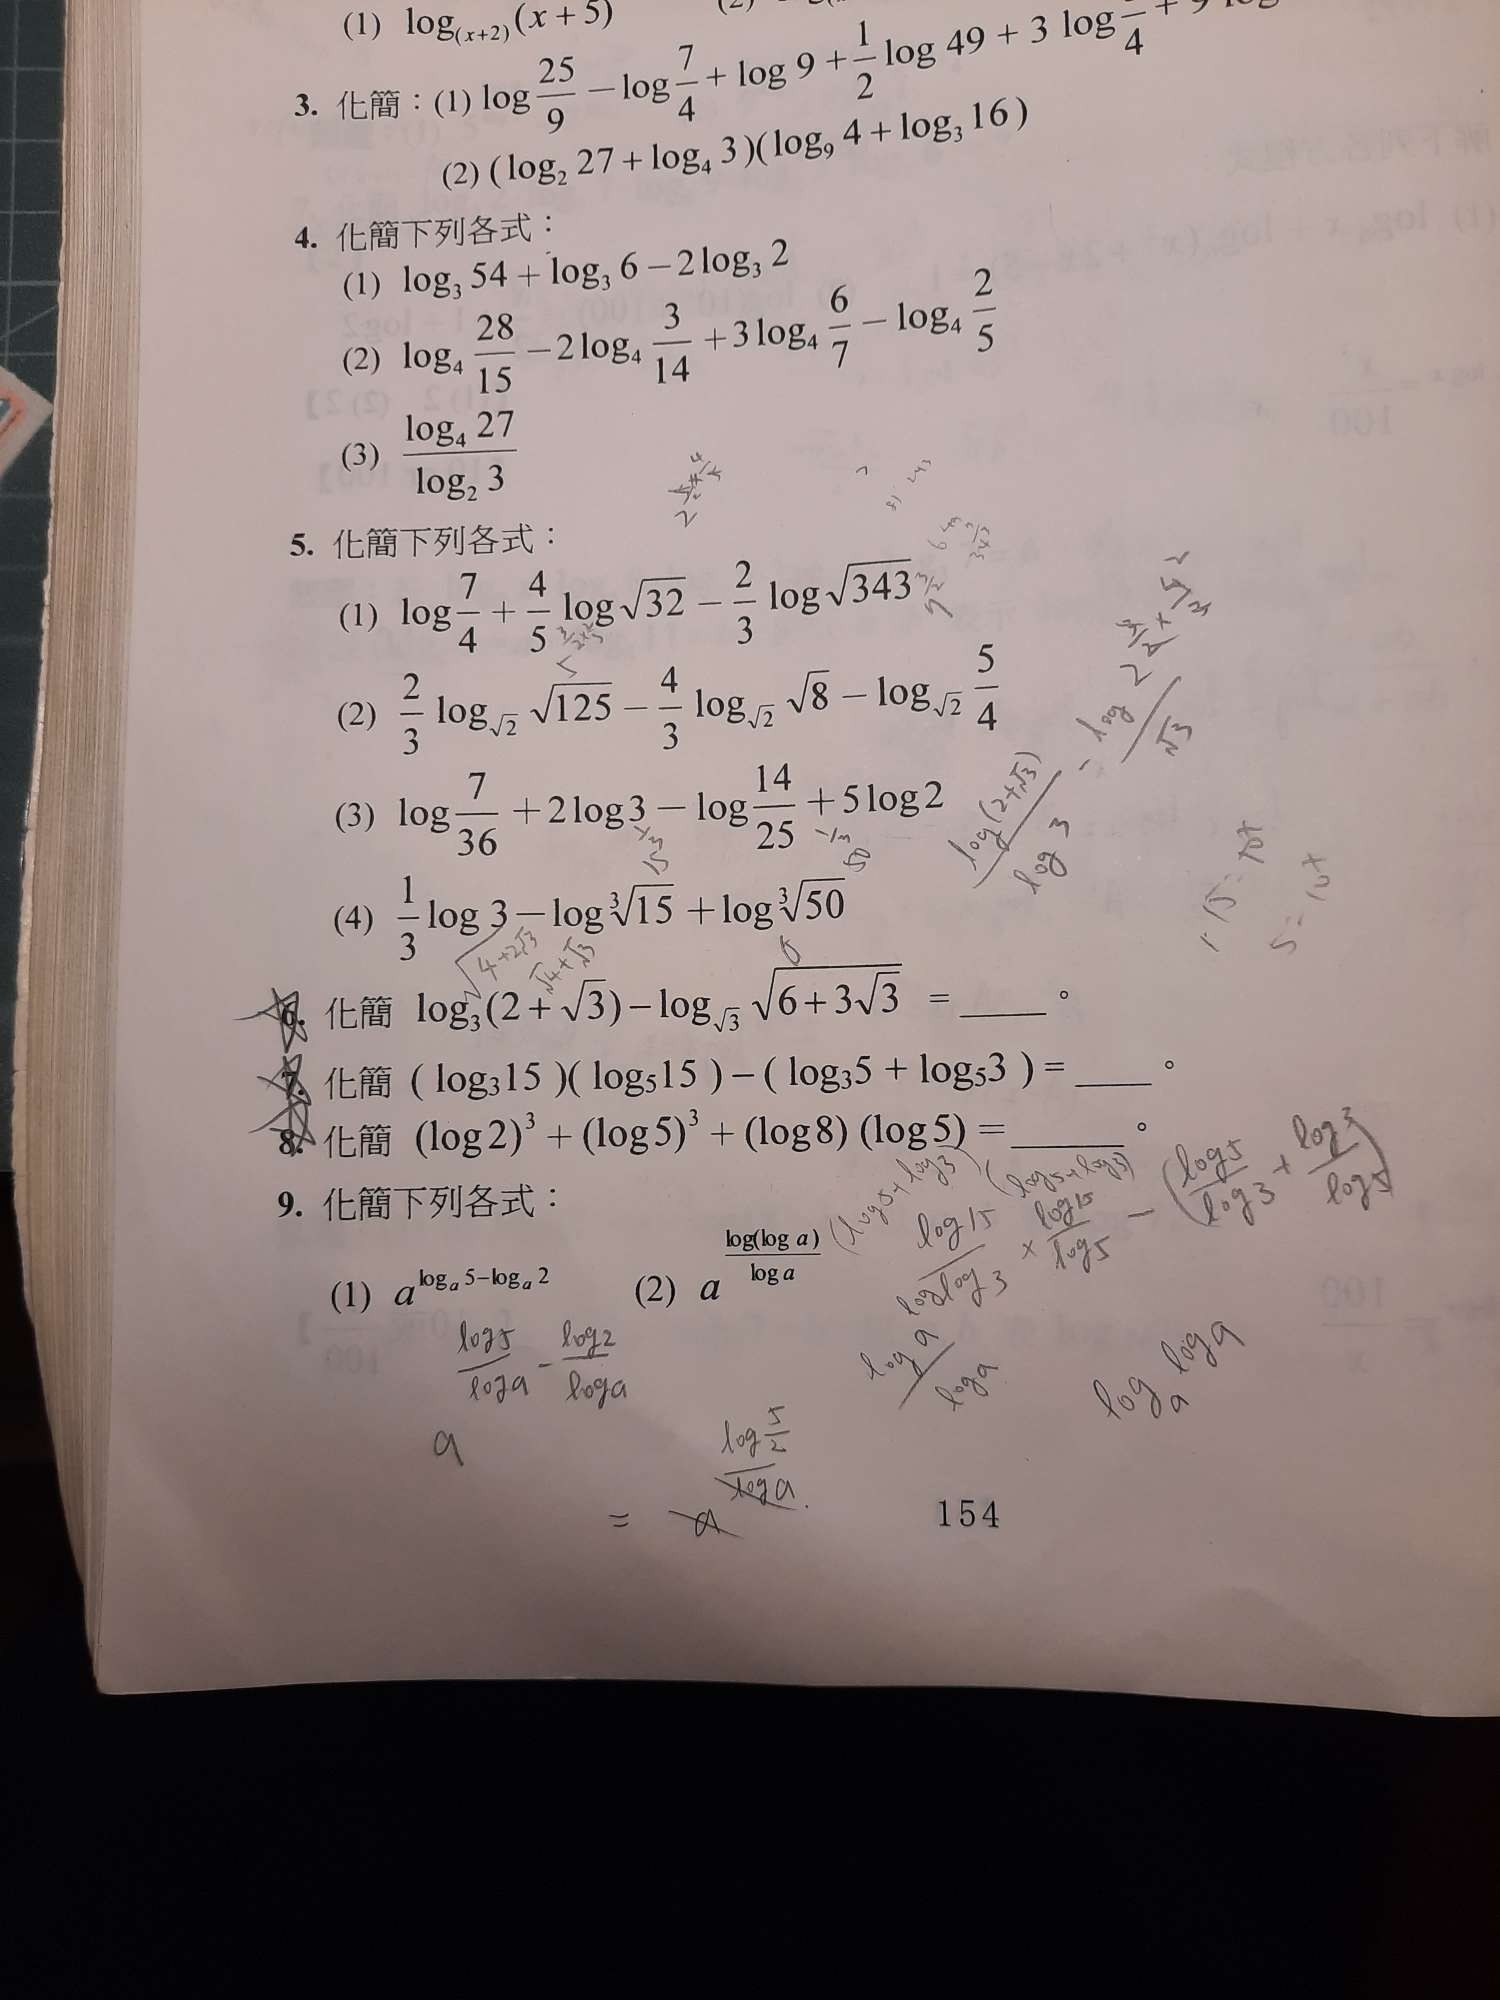 (1) log₍ₓ₊₂₎(x + 5) (2)
3. 化簡：(1) log 25/9 − log 7/4 + log 9 + 1/2 log 49 + 3 log /4 + 9 log
(2) (log₂ 27 + log₄ 3)(log₉ 4 + log₃ 16)
4. 化簡下列各式：
(1) log₃ 54 + log₃ 6 − 2 log₃ 2
(2) log₄ 28/15 − 2 log₄ 3/14 + 3 log₄ 6/7 − log₄ 2/5
(3) log₄ 27 / log₂ 3
5. 化簡下列各式：
(1) log 7/4 + 4/5 log √32 − 2/3 log √343
(2) 2/3 log_√2 √125 − 4/3 log_√2 √8 − log_√2 5/4
(3) log 7/36 + 2 log 3 − log 14/25 + 5 log 2
log(2+√3) / log 3
(4) 1/3 log 3 − log ³√15 + log ³√50
√4+2√3
√4+√3
6. 化簡 log₃(2 + √3) − log_√3 √(6 + 3√3) = ____。
7. 化簡 ( log₃15 )( log₅15 ) − ( log₃5 + log₅3 ) = ____。
8. 化簡 (log 2)³ + (log 5)³ + (log 8) (log 5) = ______。
(log5+log3) (log5+log3)
log15 / log3 × log15 / log5 − (log5/log3 + log3/log5)
9. 化簡下列各式：
(1) a^(logₐ 5−logₐ 2) (2) a^(log(log a)/log a)
log5/loga − log2/loga
log a / log a
logₐ log a
a
= a^(log 5/2 / log a)
154